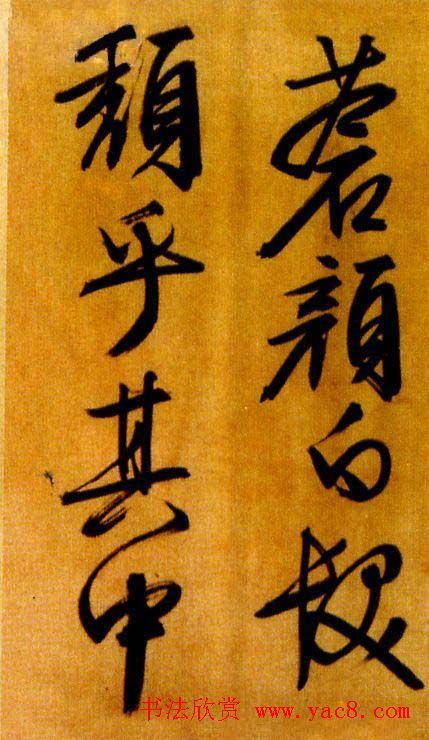 蒼顔白髮
頽乎其中
书法欣赏 www.yac8.com